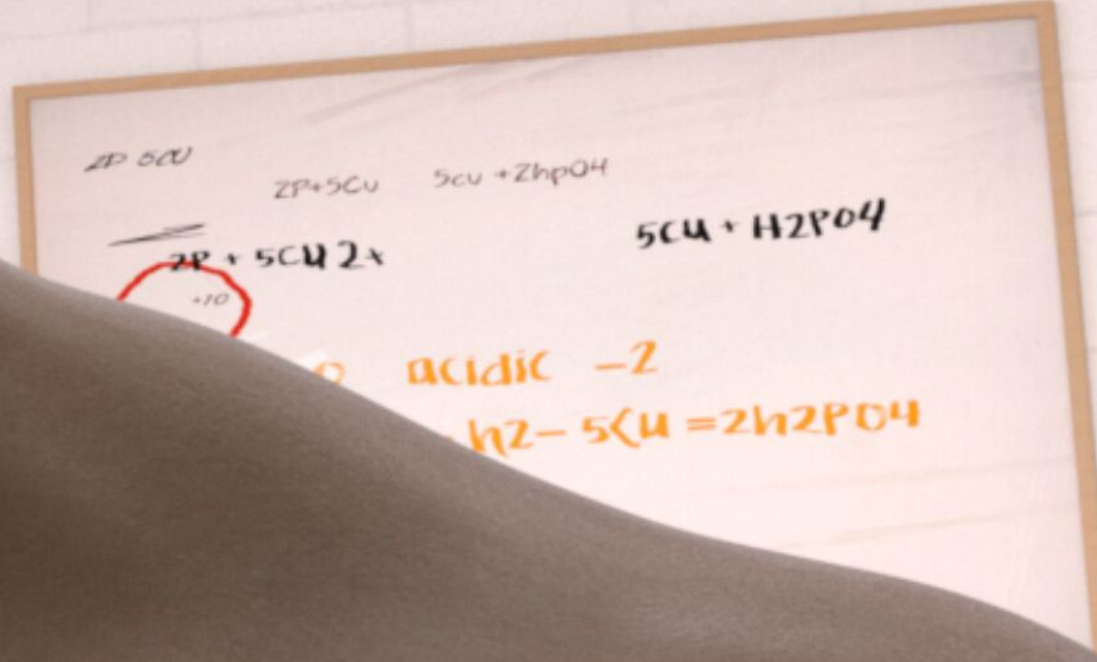 2P 5CU
2P+5Cu 5cu +2hpO4
2P + 5CU 2+ 5CU + H2PO4
+10
acidic -2
h2- 5Cu =2h2PO4